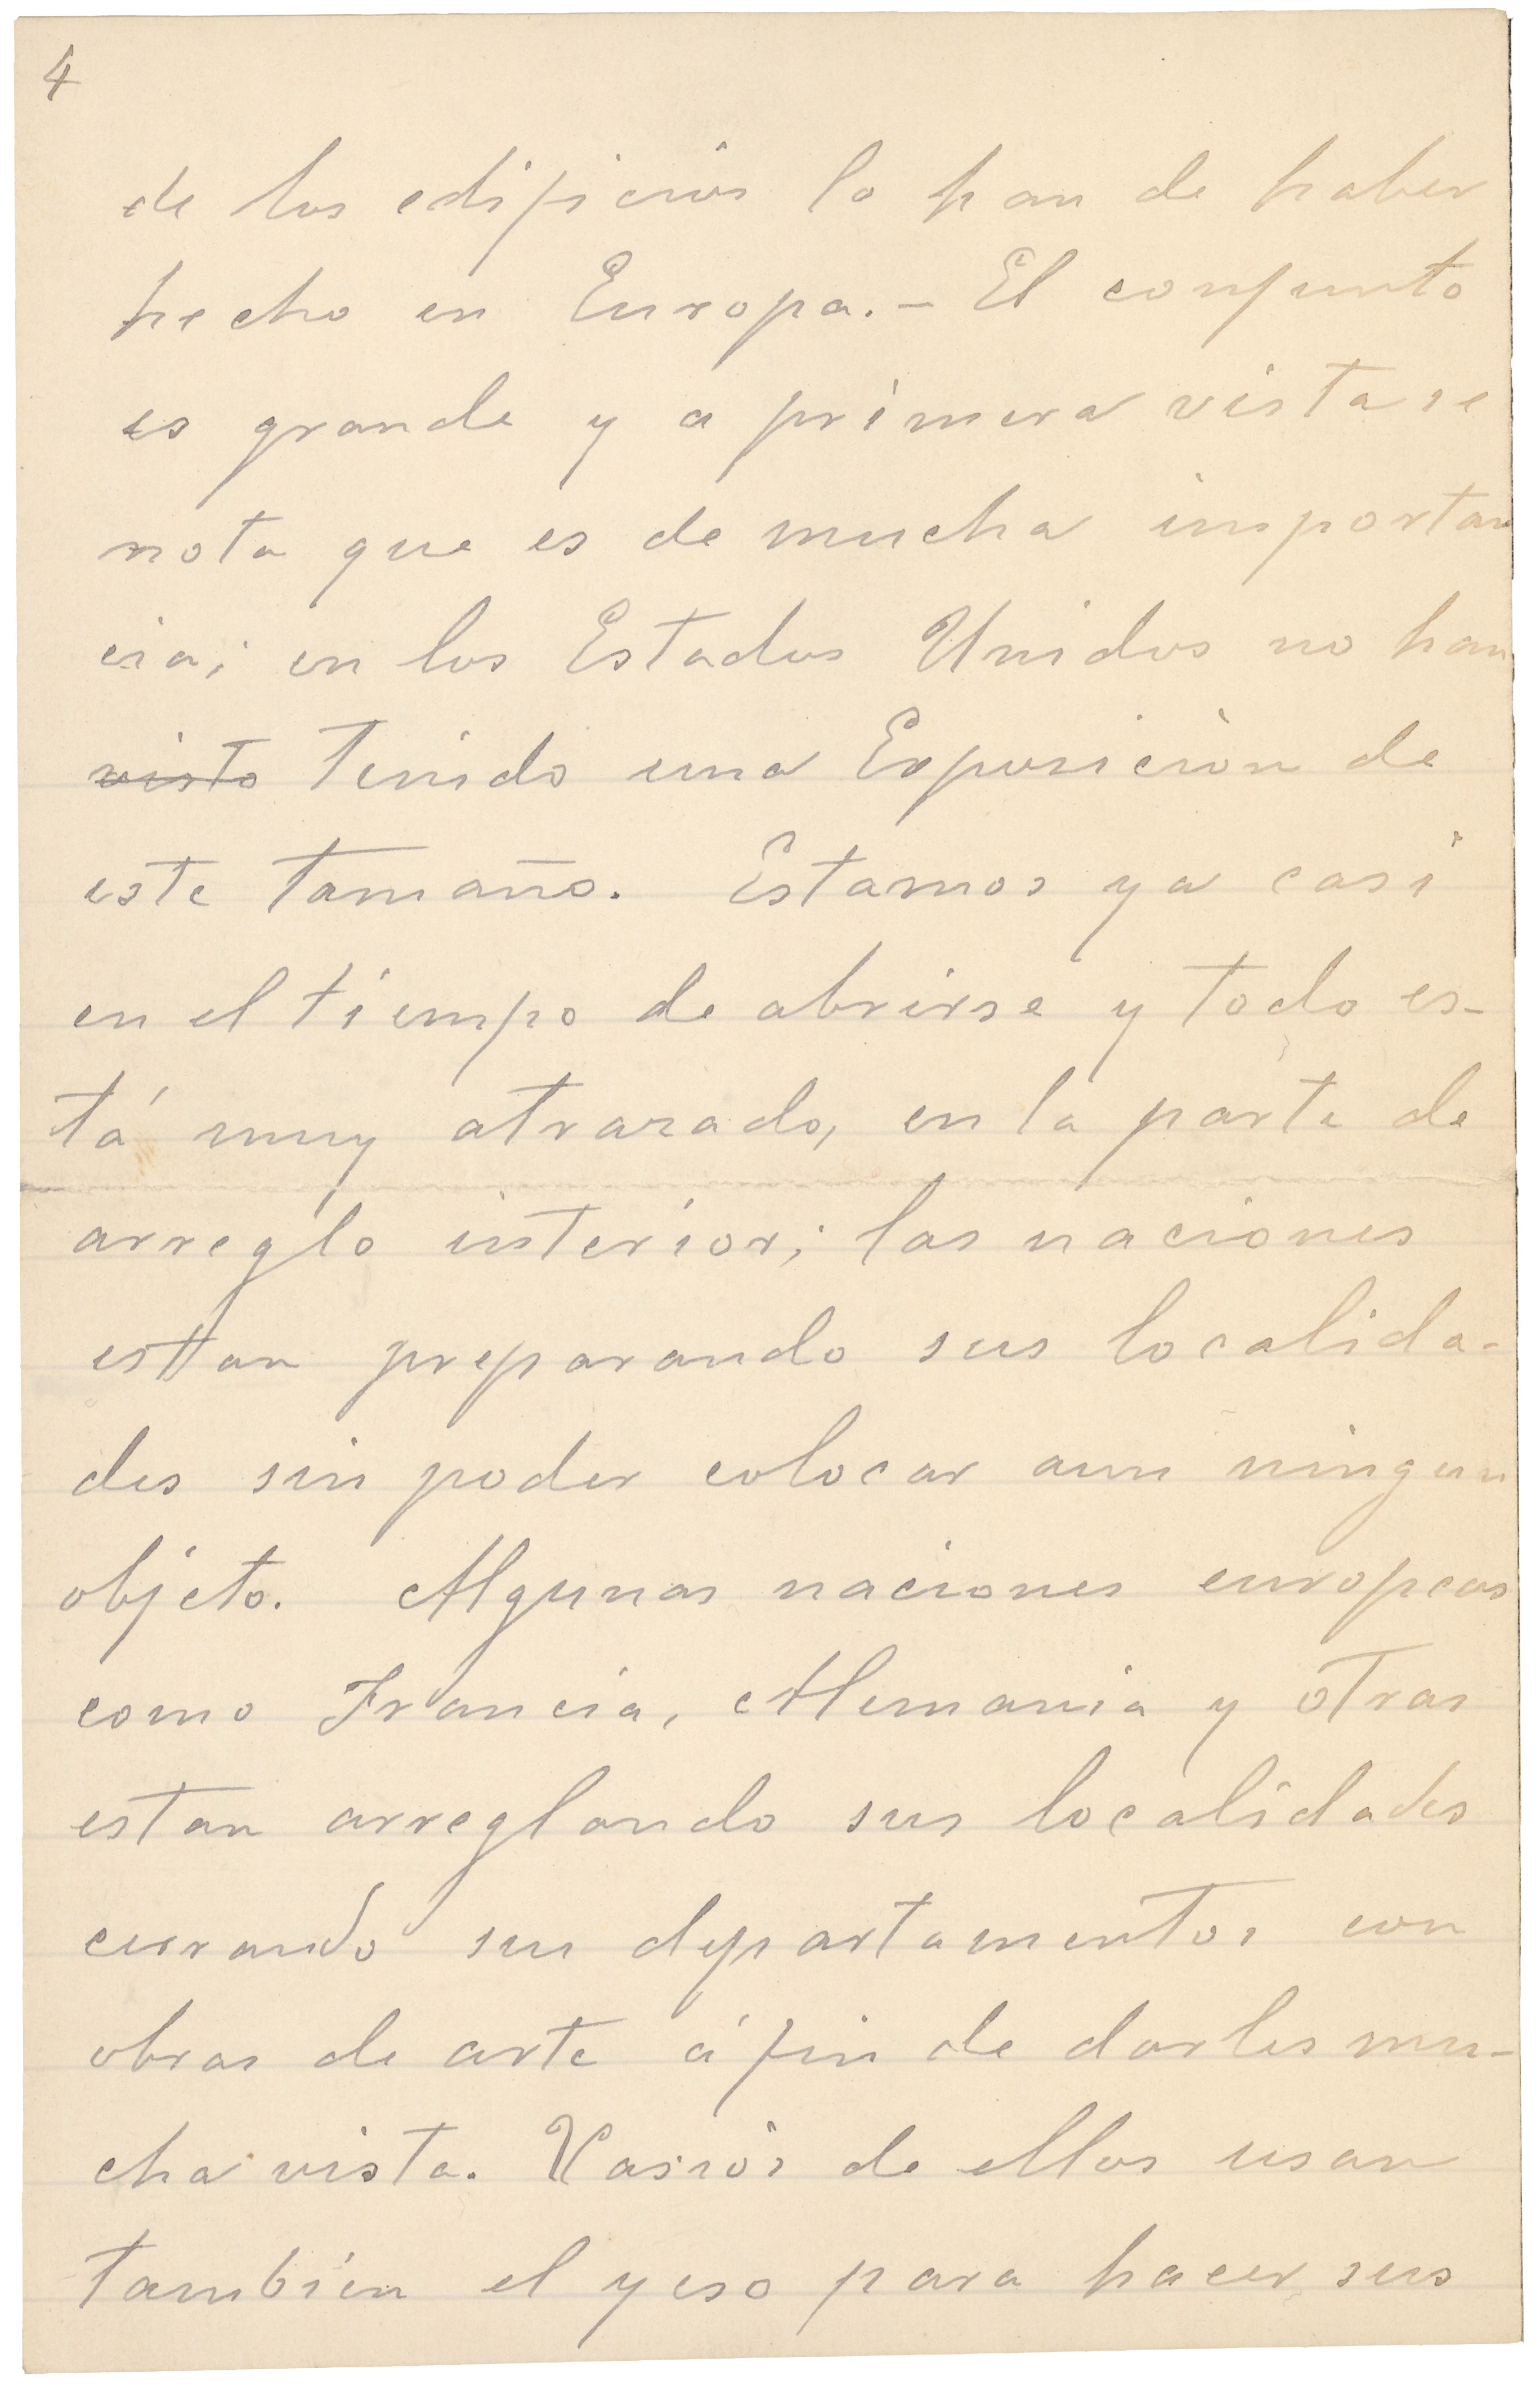 4
de los edificios lo han de haber
hecho en Europa. - El conjunto
es grande y a primera vista se
nota que es de mucha importan
cia; en los Estados Unidos no han
visto tenido una Exposición de
este tamaño. Estamos ya casi
en el tiempo de abrirse y todo es-
tá muy atrazado, en la parte de
arreglo interior; las naciones
estan preparando sus localida-
des sin poder colocar aun ningun
objeto. Algunas naciones europeas
como Francia, Alemania y otras
estan arreglando sus localidades
cerrando sus departamentos con
obras de arte á fin de darles mu-
cha vista. Varios de ellos usan
tambien el yeso para hacer sus